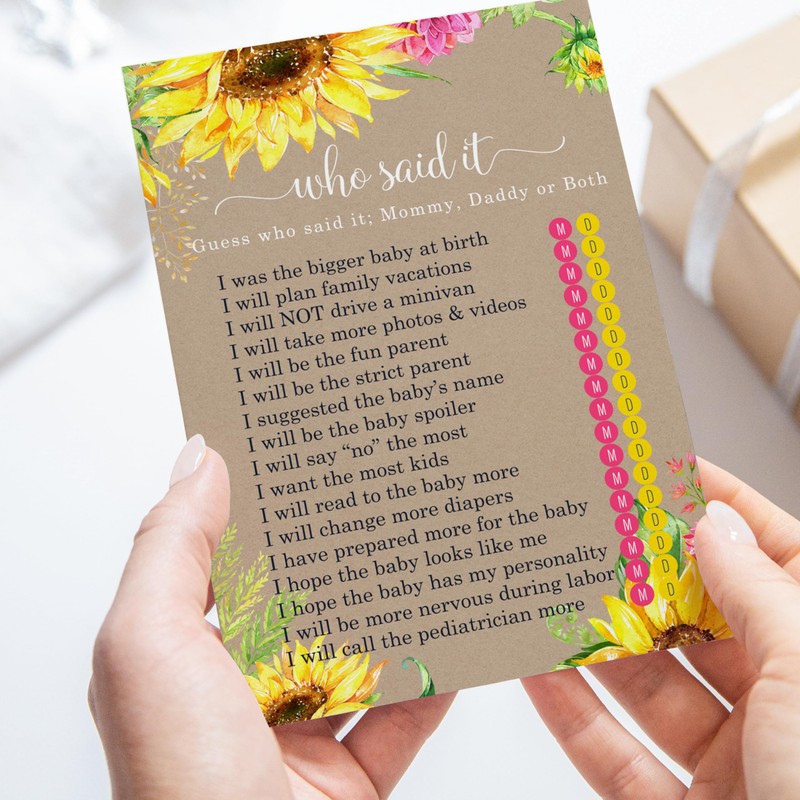 who said it
Guess who said it; Mommy, Daddy or Both
I was the bigger baby at birth M D
I will plan family vacations M D
I will NOT drive a minivan M D
I will take more photos & videos M D
I will be the fun parent M D
I will be the strict parent M D
I suggested the baby's name M D
I will be the baby spoiler M D
I will say “no” the most M D
I want the most kids M D
I will read to the baby more M D
I will change more diapers M D
I have prepared more for the baby M D
I hope the baby looks like me M D
I hope the baby has my personality M D
I will be more nervous during labor M D
I will call the pediatrician more M D